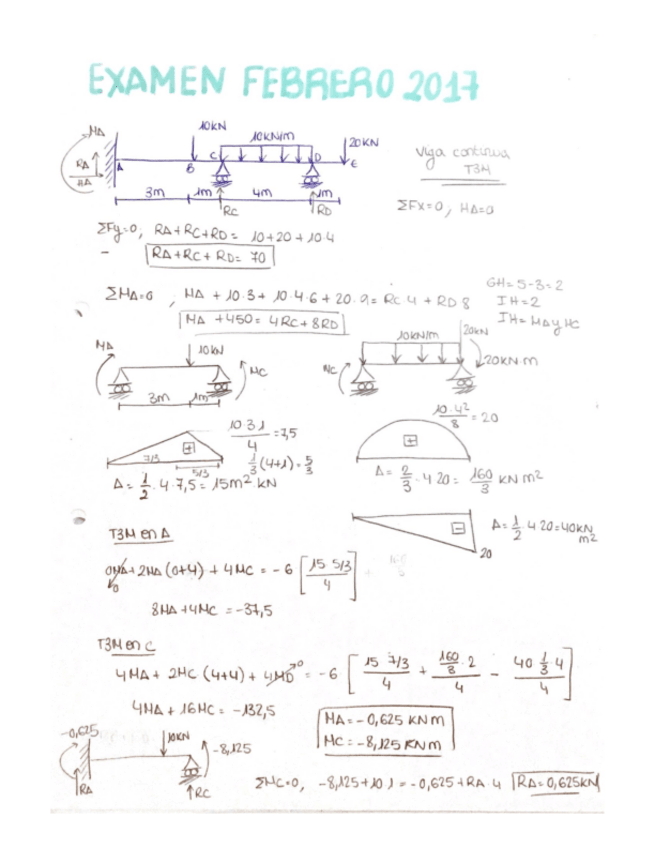 EXAMEN FEBRERO 2017
MA 10KN 10KN/m 20KN
RA HA A B C D E
3m 1m 4m 1m
RC RD
Viga continua
T3M
ΣFx=0, HA=0
ΣFy=0, RA+RC+RD= 10+20+10·4
RA+RC+RD= 70
ΣMA=0, MA + 10·3 + 10·4·6 + 20·9 = RC·4 + RD·8
MA + 450 = 4RC + 8RD
GH= 5-3=2
IH=2
IH= MA y MC
MA 10KN MC
3m 1m
MC 10KN/m 20KN 20KN·m
10·3·1/4 = 7,5
1/3 (4+1) = 5/3
7/3 5/3
A= 1/2 · 4 · 7,5 = 15m²·KN
10·4²/8 = 20
A= 2/3 · 4·20 = 160/3 KN m²
A= 1/2 · 4·20 = 40KN m²
20
T3M en A
0MA + 2MA (0+4) + 4MC = -6 [15 5/3 / 4]
0
8MA + 4MC = -37,5
T3M en C
4MA + 2MC (4+4) + 4MD = -6 [15 7/3 / 4 + 160/3 · 2 / 4 - 40 1/3 · 4 / 4]
0
4MA + 16MC = -132,5
MA = -0,625 KN m
MC = -8,125 KN m
-0,625 10KN -8,125
RA RC
ΣMC=0, -8,125 + 10·1 = -0,625 + RA·4 RA= 0,625KN